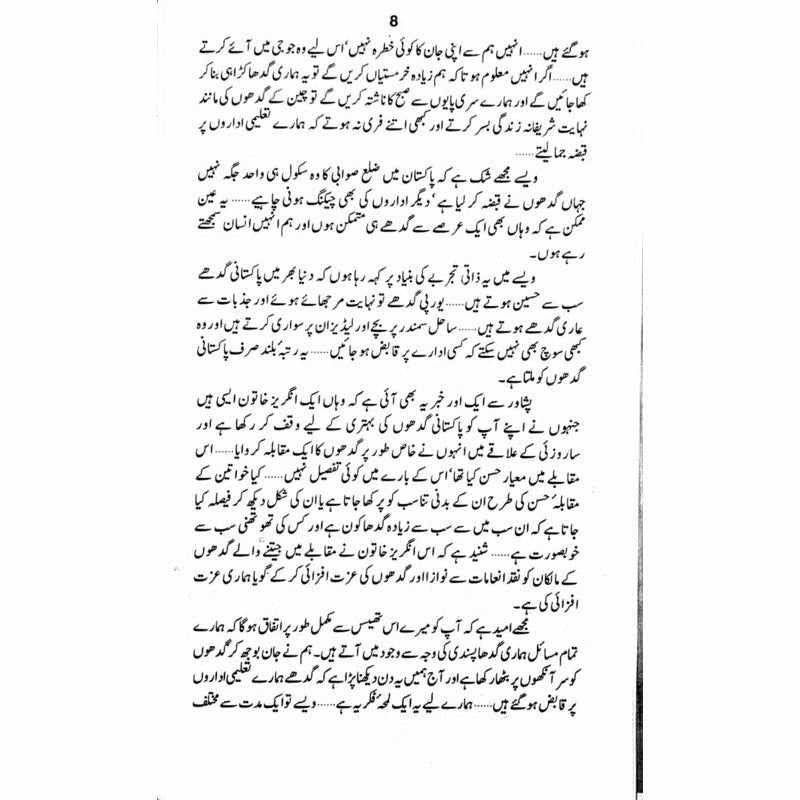 8
ہو گئے ہیں...... انہیں ہم سے اپنی جان کا کوئی خطرہ نہیں‘ اس لیے وہ جو جی میں آئے کرتے
ہیں...... اگر انہیں معلوم ہوتا کہ ہم زیادہ خرمستیاں کریں گے تو یہ ہماری گدھا کڑاہی بنا کر
کھا جائیں گے اور ہمارے سری پایوں سے صبح کا ناشتہ کریں گے تو چین کے گدھوں کی مانند
نہایت شریفانہ زندگی بسر کرتے اور کبھی اتنے فری نہ ہوتے کہ ہمارے تعلیمی اداروں پر
قبضہ جما لیتے......
ویسے مجھے شک ہے کہ پاکستان میں ضلع صوابی کا وہ سکول ہی واحد جگہ نہیں
جہاں گدھوں نے قبضہ کر لیا ہے‘ دیگر اداروں کی بھی چیکنگ ہونی چاہیے...... یہ عین
ممکن ہے کہ وہاں بھی ایک عرصے سے گدھے ہی متمکن ہوں اور ہم انہیں انسان سمجھتے
رہے ہوں۔
ویسے میں یہ ذاتی تجربے کی بنیاد پر کہہ رہا ہوں کہ دنیا بھر میں پاکستانی گدھے
سب سے حسین ہوتے ہیں...... یورپی گدھے تو نہایت مرجھائے ہوئے اور جذبات سے
عاری گدھے ہوتے ہیں...... ساحل سمندر پر بچے اور لیڈیز ان پر سواری کرتے ہیں اور وہ
کبھی سوچ بھی نہیں سکتے کہ کسی ادارے پر قابض ہو جائیں...... یہ رتبہٴ بلند صرف پاکستانی
گدھوں کو ملتا ہے۔
پشاور سے ایک اور خبر یہ بھی آئی ہے کہ وہاں ایک انگریز خاتون ایسی ہیں
جنہوں نے اپنے آپ کو پاکستانی گدھوں کی بہتری کے لیے وقف کر رکھا ہے اور
ساروزئی کے علاقے میں انہوں نے خاص طور پر گدھوں کا ایک مقابلہ کروایا...... اس
مقابلے میں معیار حسن کیا تھا‘ اس کے بارے میں کوئی تفصیل نہیں...... کیا خواتین کے
مقابلہٴ حسن کی طرح ان کے بدنی تناسب کو پرکھا جاتا ہے یا ان کی شکل دیکھ کر فیصلہ کیا
جاتا ہے کہ ان سب میں سے سب سے زیادہ گدھا کون ہے اور کس کی تھوتھنی سب سے
خوبصورت ہے...... شنید ہے کہ اس انگریز خاتون نے مقابلے میں جیتنے والے گدھوں
کے مالکان کو نقد انعامات سے نوازا اور گدھوں کی عزت افزائی کر کے گویا ہماری عزت
افزائی کی ہے۔
مجھے امید ہے کہ آپ کو میرے اس تھیسس سے مکمل طور پر اتفاق ہو گا کہ ہمارے
تمام مسائل ہماری گدھا پسندی کی وجہ سے وجود میں آتے ہیں۔ ہم نے جان بوجھ کر گدھوں
کو سر آنکھوں پر بٹھا رکھا ہے اور آج ہمیں یہ دن دیکھنا پڑا ہے کہ گدھے ہمارے تعلیمی اداروں
پر قابض ہو گئے ہیں...... ہمارے لیے یہ ایک لمحہٴ فکریہ ہے...... ویسے تو ایک مدت سے مختلف